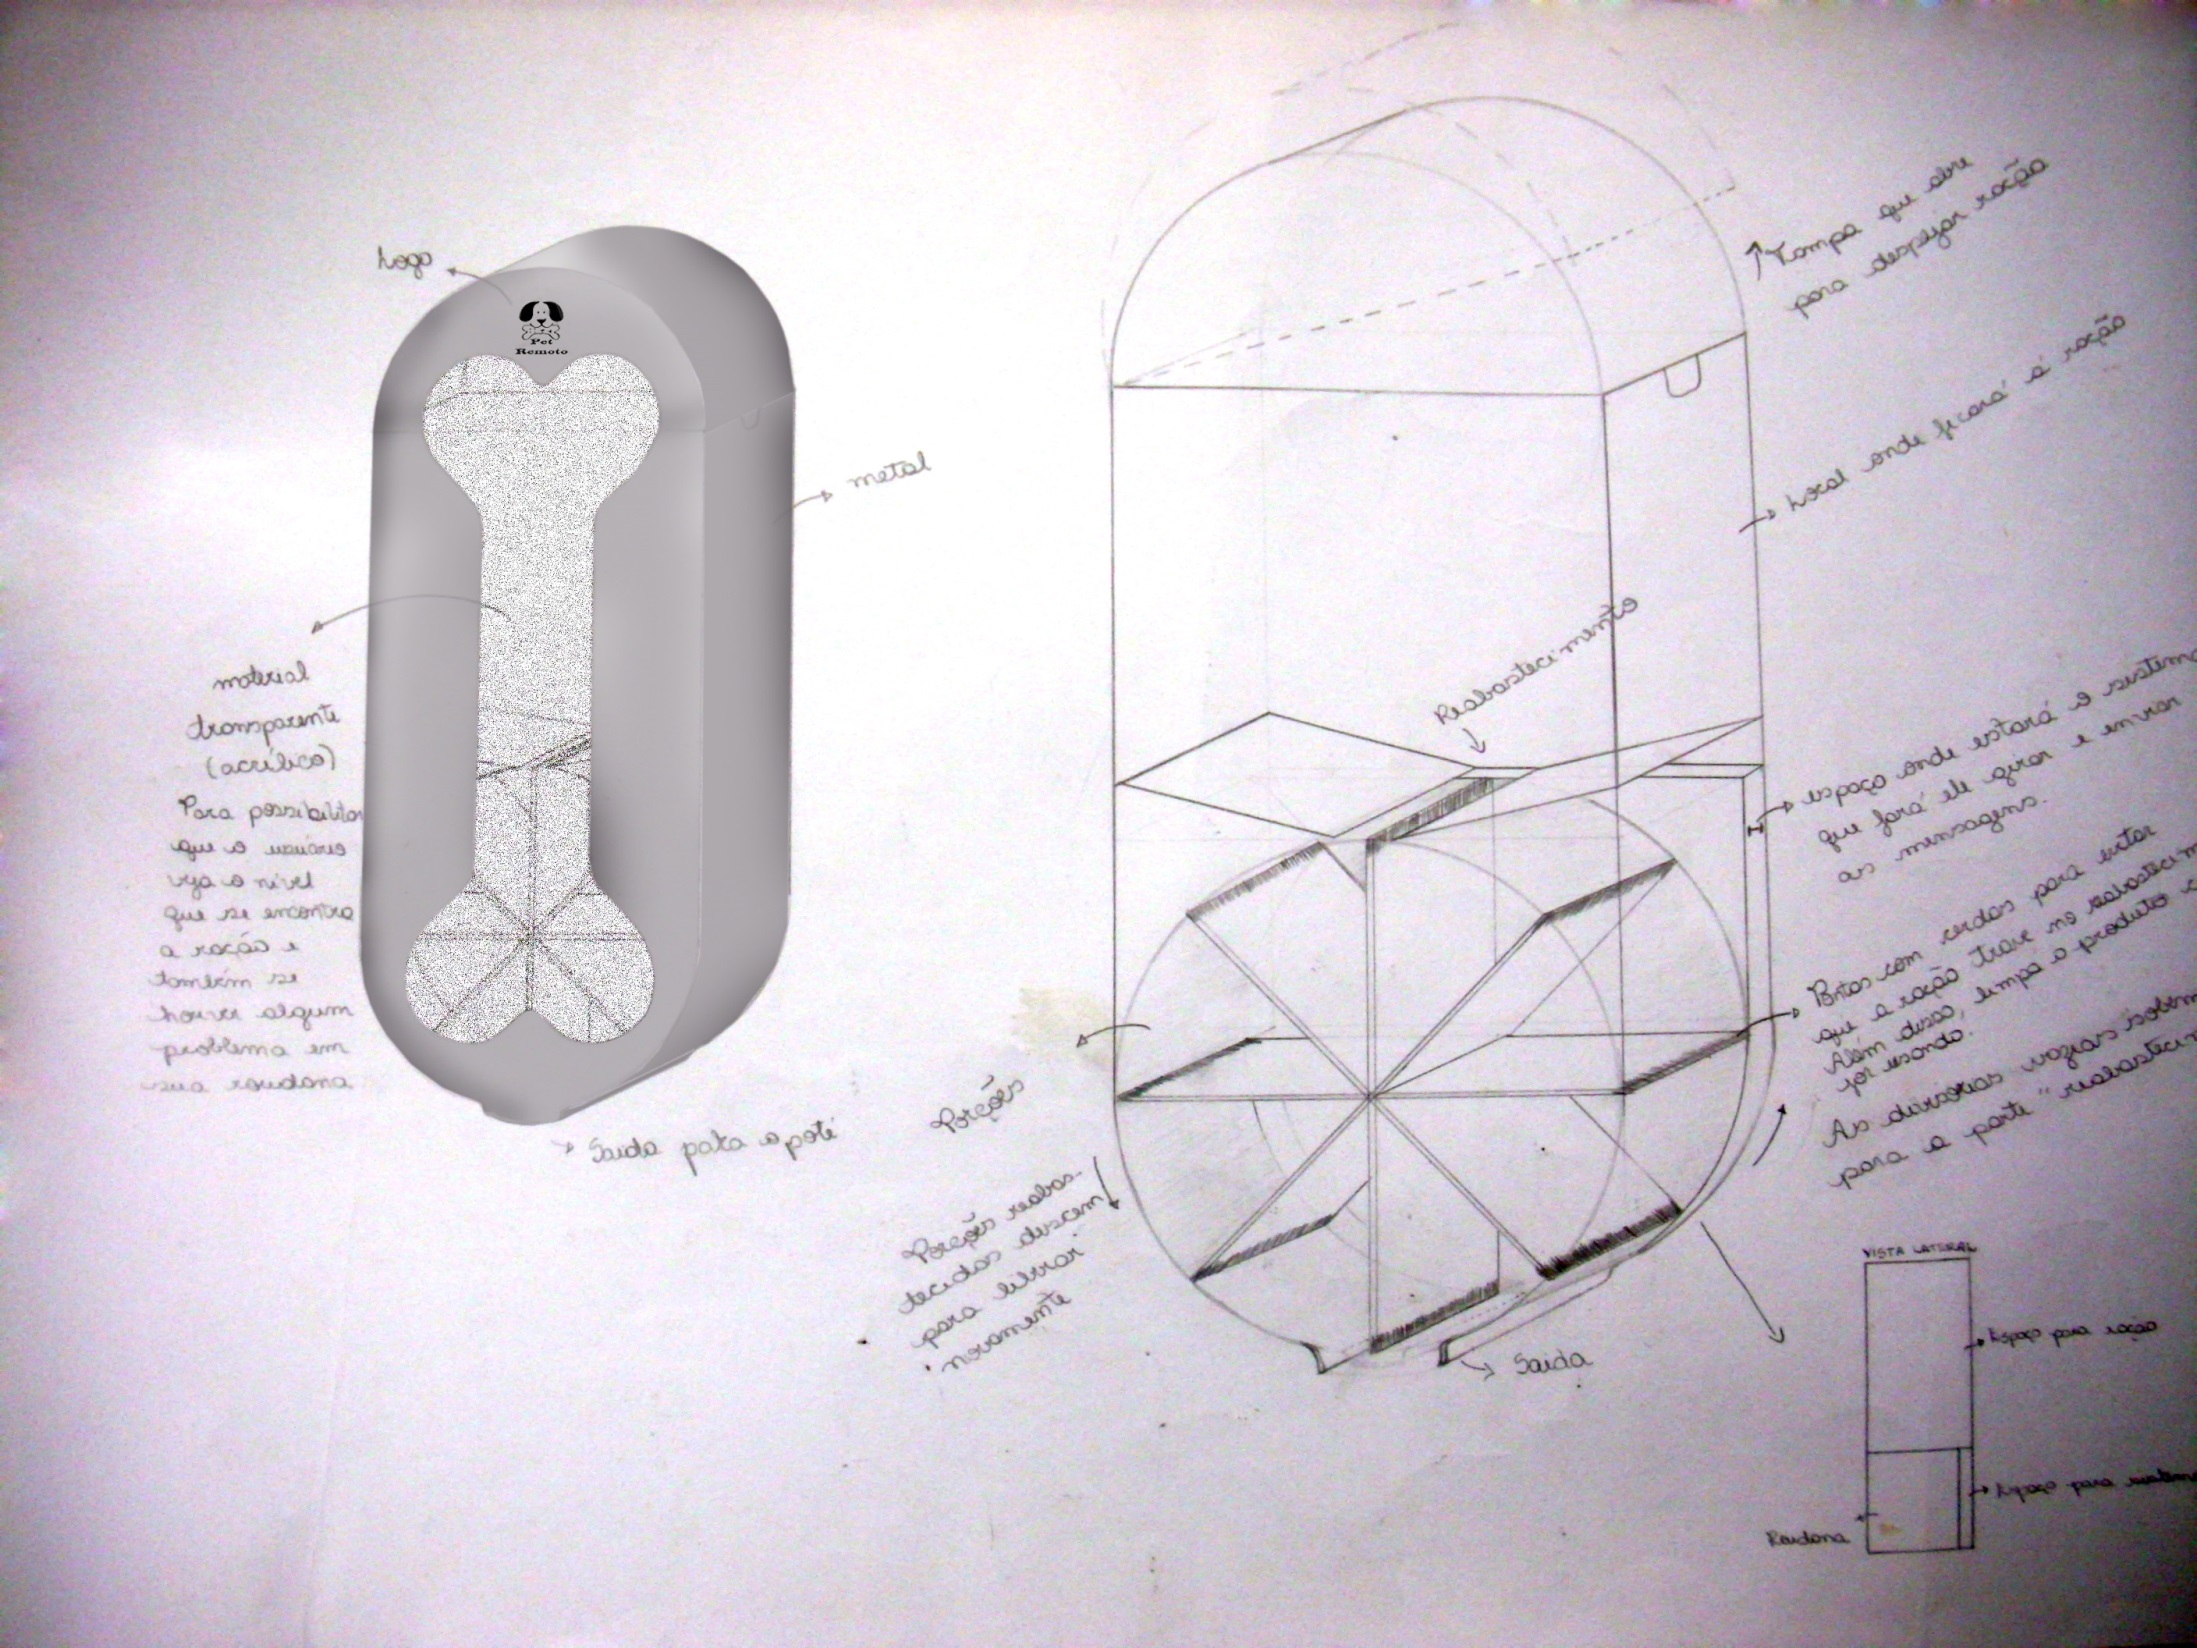 Logo
Pet
Remoto
metal
material
transparente
(acrílico)
Para possibilitar
que o usuário
veja o nível
que se encontra
a ração e
também se
houver algum
problema em
sua roudana
Saida pata o pote
Tampa que abre
para despejar ração
Local onde ficará a ração
Reabastecimento
espaço onde estará o sistema
que fará ele girar e enviar
as mensagens.
Pontas com cerdas para evitar
que a ração trave no
Além disso, limpa o produto
for usando.
As divisórias vazias sobem
para a parte "
Porções
Porções reabas-
tecidas descem
para livrar
novamente
Saida
VISTA LATERAL
Espaço para ração
Espaço para
Roudana